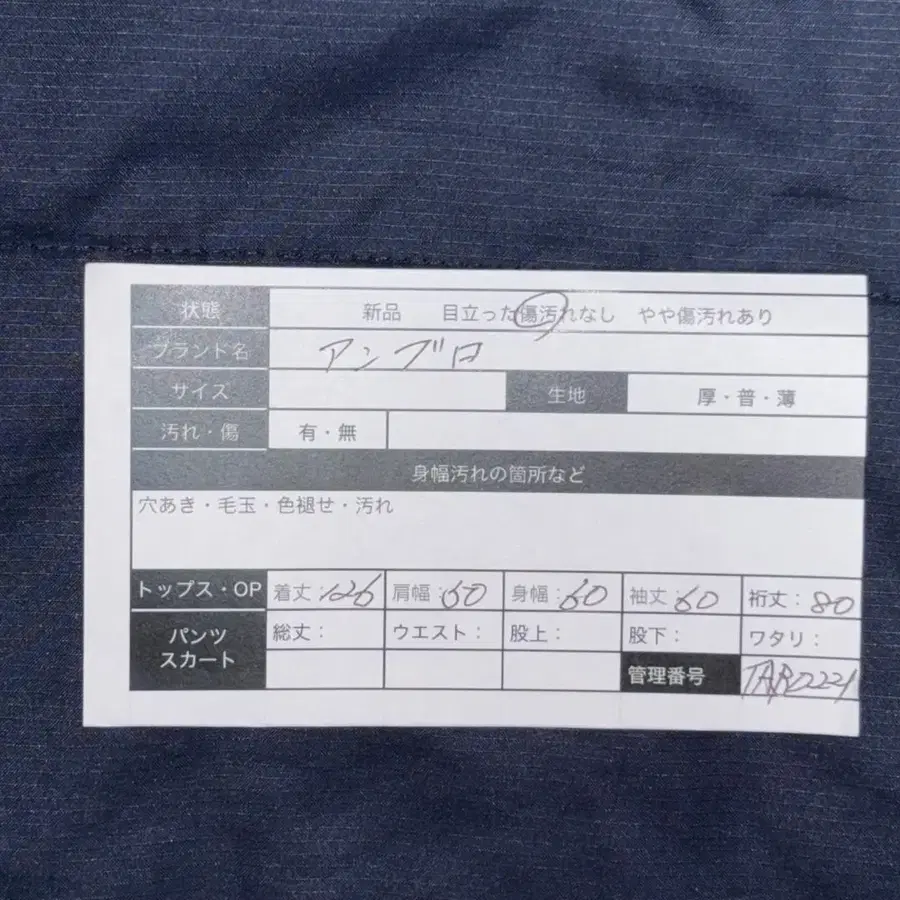 状態 新品 目立った傷汚れなし やや傷汚れあり
ブランド名 アンブロ
サイズ 生地 厚・普・薄
汚れ・傷 有・無
身幅汚れの箇所など
穴あき・毛玉・色褪せ・汚れ
トップス・OP 着丈:126 肩幅:60 身幅:60 袖丈:60 裄丈:80
パンツ 総丈: ウエスト: 股上: 股下: ワタリ:
スカート
管理番号 TAR0221